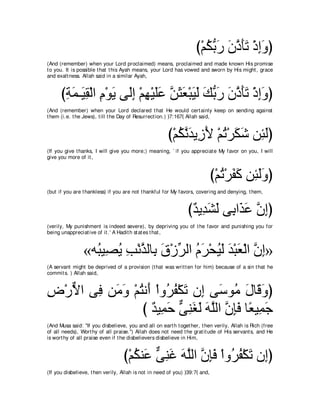 (وَإِذْ تَأَذَّنَ رَبُّكُمْ)
(And (remember) when your Lord proclaimed) means, proclaimed and made known His promise
to you. It is possible that this Ayah means, your Lord has vowed and sworn by His might, grace
and exaltness. Allah said in a similar Ayah,
(وَإِذْ تَأَذَّنَ رَبُّكَ لَيَبْعَثَنَّ عَلَيْهِمْ إِلَى يَوْمِ الْقِيَـمَةِ)
(And (remember) when your Lord declared that He would certainly keep on sending against
them (i.e. the Jews), till the Day of Resurrection.) [7:167] Allah said,
(لَئِن شَكَرْتُمْ لأَزِيدَنَّكُمْ)
(If you give thanks, I will give you more;) meaning, `if you appreciate My favor on you, I will
give you more of it,
(وَلَئِن كَفَرْتُمْ)
(but if you are thankless) if you are not thankful for My favors, covering and denying, them,
(إِنَّ عَذَابِى لَشَدِيدٌ)
(verily, My punishment is indeed severe), by depriving you of the favor and punishing you for
being unappreciative of it.' A Hadith states that,
«إِنَّ الْعَبْدَ لَيُحْرَمُ الرِّزْقَ بِالذَّنْبِ يُصِيبُه»
(A servant might be deprived of a provision (that was written for him) because of a sin that he
commits.) Allah said,
(وَقَالَ مُوسَى إِن تَكْفُرُواْ أَنتُمْ وَمَن فِى الاٌّرْضِ
جَمِيعًا فَإِنَّ اللَّهَ لَغَنِىٌّ حَمِيدٌ )
(And Musa said: "If you disbelieve, you and all on earth together, then verily, Allah is Rich (free
of all needs), Worthy of all praise.") Allah does not need the gratitude of His servants, and He
is worthy of all praise even if the disbelievers disbelieve in Him,
(إِن تَكْفُرُواْ فَإِنَّ اللَّهَ غَنِىٌّ عَنكُمْ)
(If you disbelieve, then verily, Allah is not in need of you) [39:7] and,